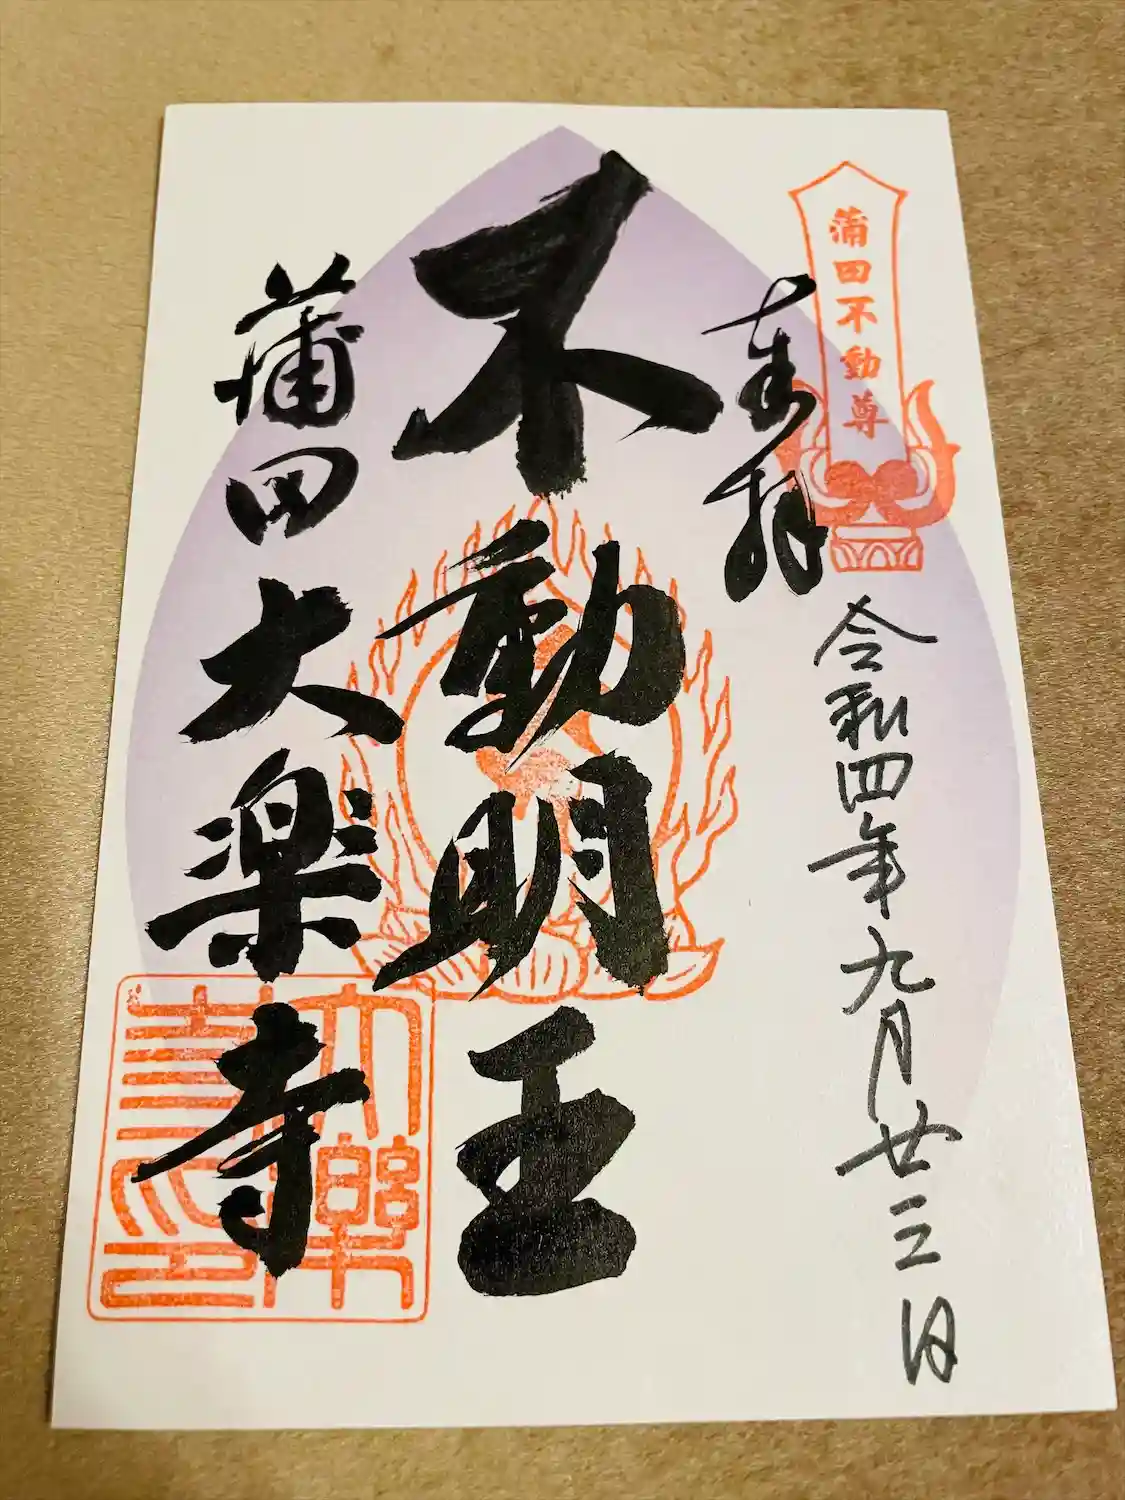 蒲田不動尊
奉拝
令和四年九月廿三日
不動明王
蒲田大楽寺